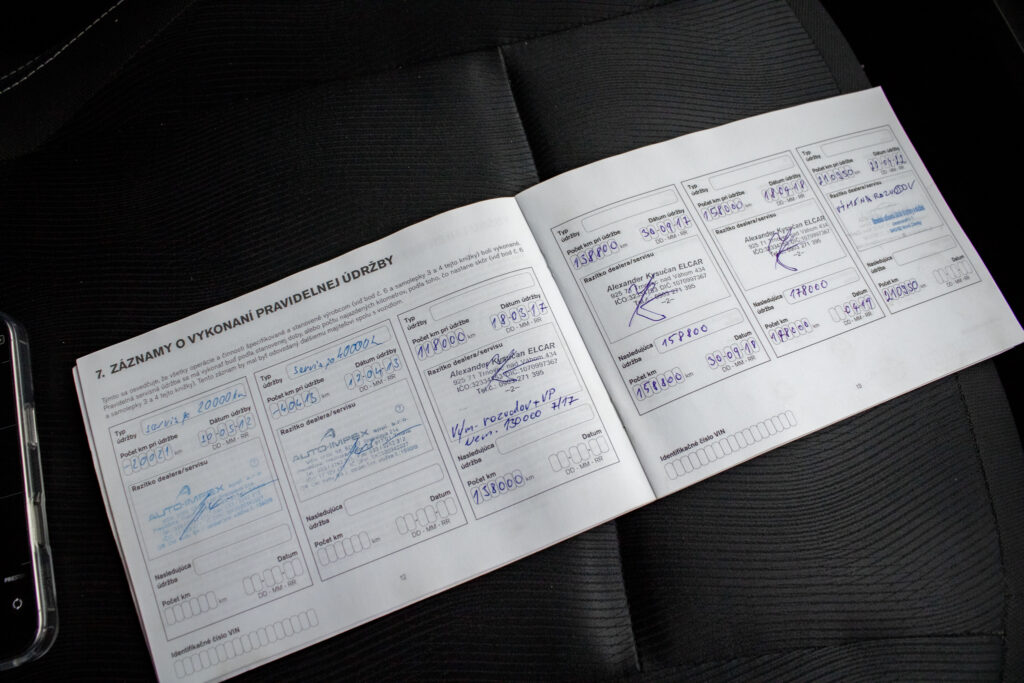 7. ZÁZNAMY O VYKONANÍ PRAVIDELNEJ ÚDRŽBY
Týmto sa osvedčuje, že všetky operácie a činnosti špecifikované a stanovené výrobcom (viď bod č. 6 a samolepky 3 a 4 tejto knižky) boli vykonané.
Pravidelná servisná údržba sa má vykonať buď podľa stanovenej doby, alebo počtu najazdených kilometrov, podľa toho, čo nastane skôr (viď bod č. 6
a samolepky 3 a 4 tejto knižky). Tento záznam by mal byť odovzdaný ďalšiemu majiteľovi spolu s vozidlom.
Typ údržby servis po 20000 km
Počet km pri údržbe
Dátum údržby
20021
DD - MM - RR
Razítko dealera/servisu
AUTO-IMPEX
Nasledujúca údržba
Počet km
km
Datum
DD - MM - RR
Identifikačné číslo VIN
Typ údržby servis po 40000 km
Počet km pri údržbe
Dátum údržby
40413
12-04-13
DD - MM - RR
Razítko dealera/servisu
AUTO-IMPEX
Nasledujúca údržba
Počet km
km
Datum
DD - MM - RR
12
Typ údržby
Počet km pri údržbe
Dátum údržby
118000 km
18-03-17
DD - MM - RR
Razítko dealera/servisu
Alexander Kysučan ELCAR
925 71 Trnovec nad Váhom 434
271 395
-2-
Vým. rozvodov + VP
Nem. 130000 7/17
Nasledujúca údržba
Počet km
158000 km
Datum
DD - MM - RR
Typ údržby
Počet km pri údržbe
Dátum údržby
138800 km
30-09-17
DD - MM - RR
Razítko dealera/servisu
Alexander Kysučan ELCAR
925 71 Trnovec nad Váhom 434
DIČ:1070997367
271 395
-2-
Nasledujúca údržba
158800
Počet km
158800 km
Datum
30-09-18
DD - MM - RR
Identifikačné číslo VIN
Typ údržby
Počet km pri údržbe
Dátum údržby
158000 km
18-04-18
DD - MM - RR
Razítko dealera/servisu
Alexander Kysučan ELCAR
925 71 Trnovec nad Váhom 434
DIČ:1070997367
271 395
-2-
Nasledujúca údržba
178000
Počet km
178000 km
Datum
04-19
DD - MM - RR
13
Typ údržby
Počet km pri údržbe
Dátum údržby
km
DD - MM - RR
Razítko dealera/servisu
VÝMENA ROZVODOV
Nasledujúca údržba
Počet km
km
Datum
DD - MM - RR